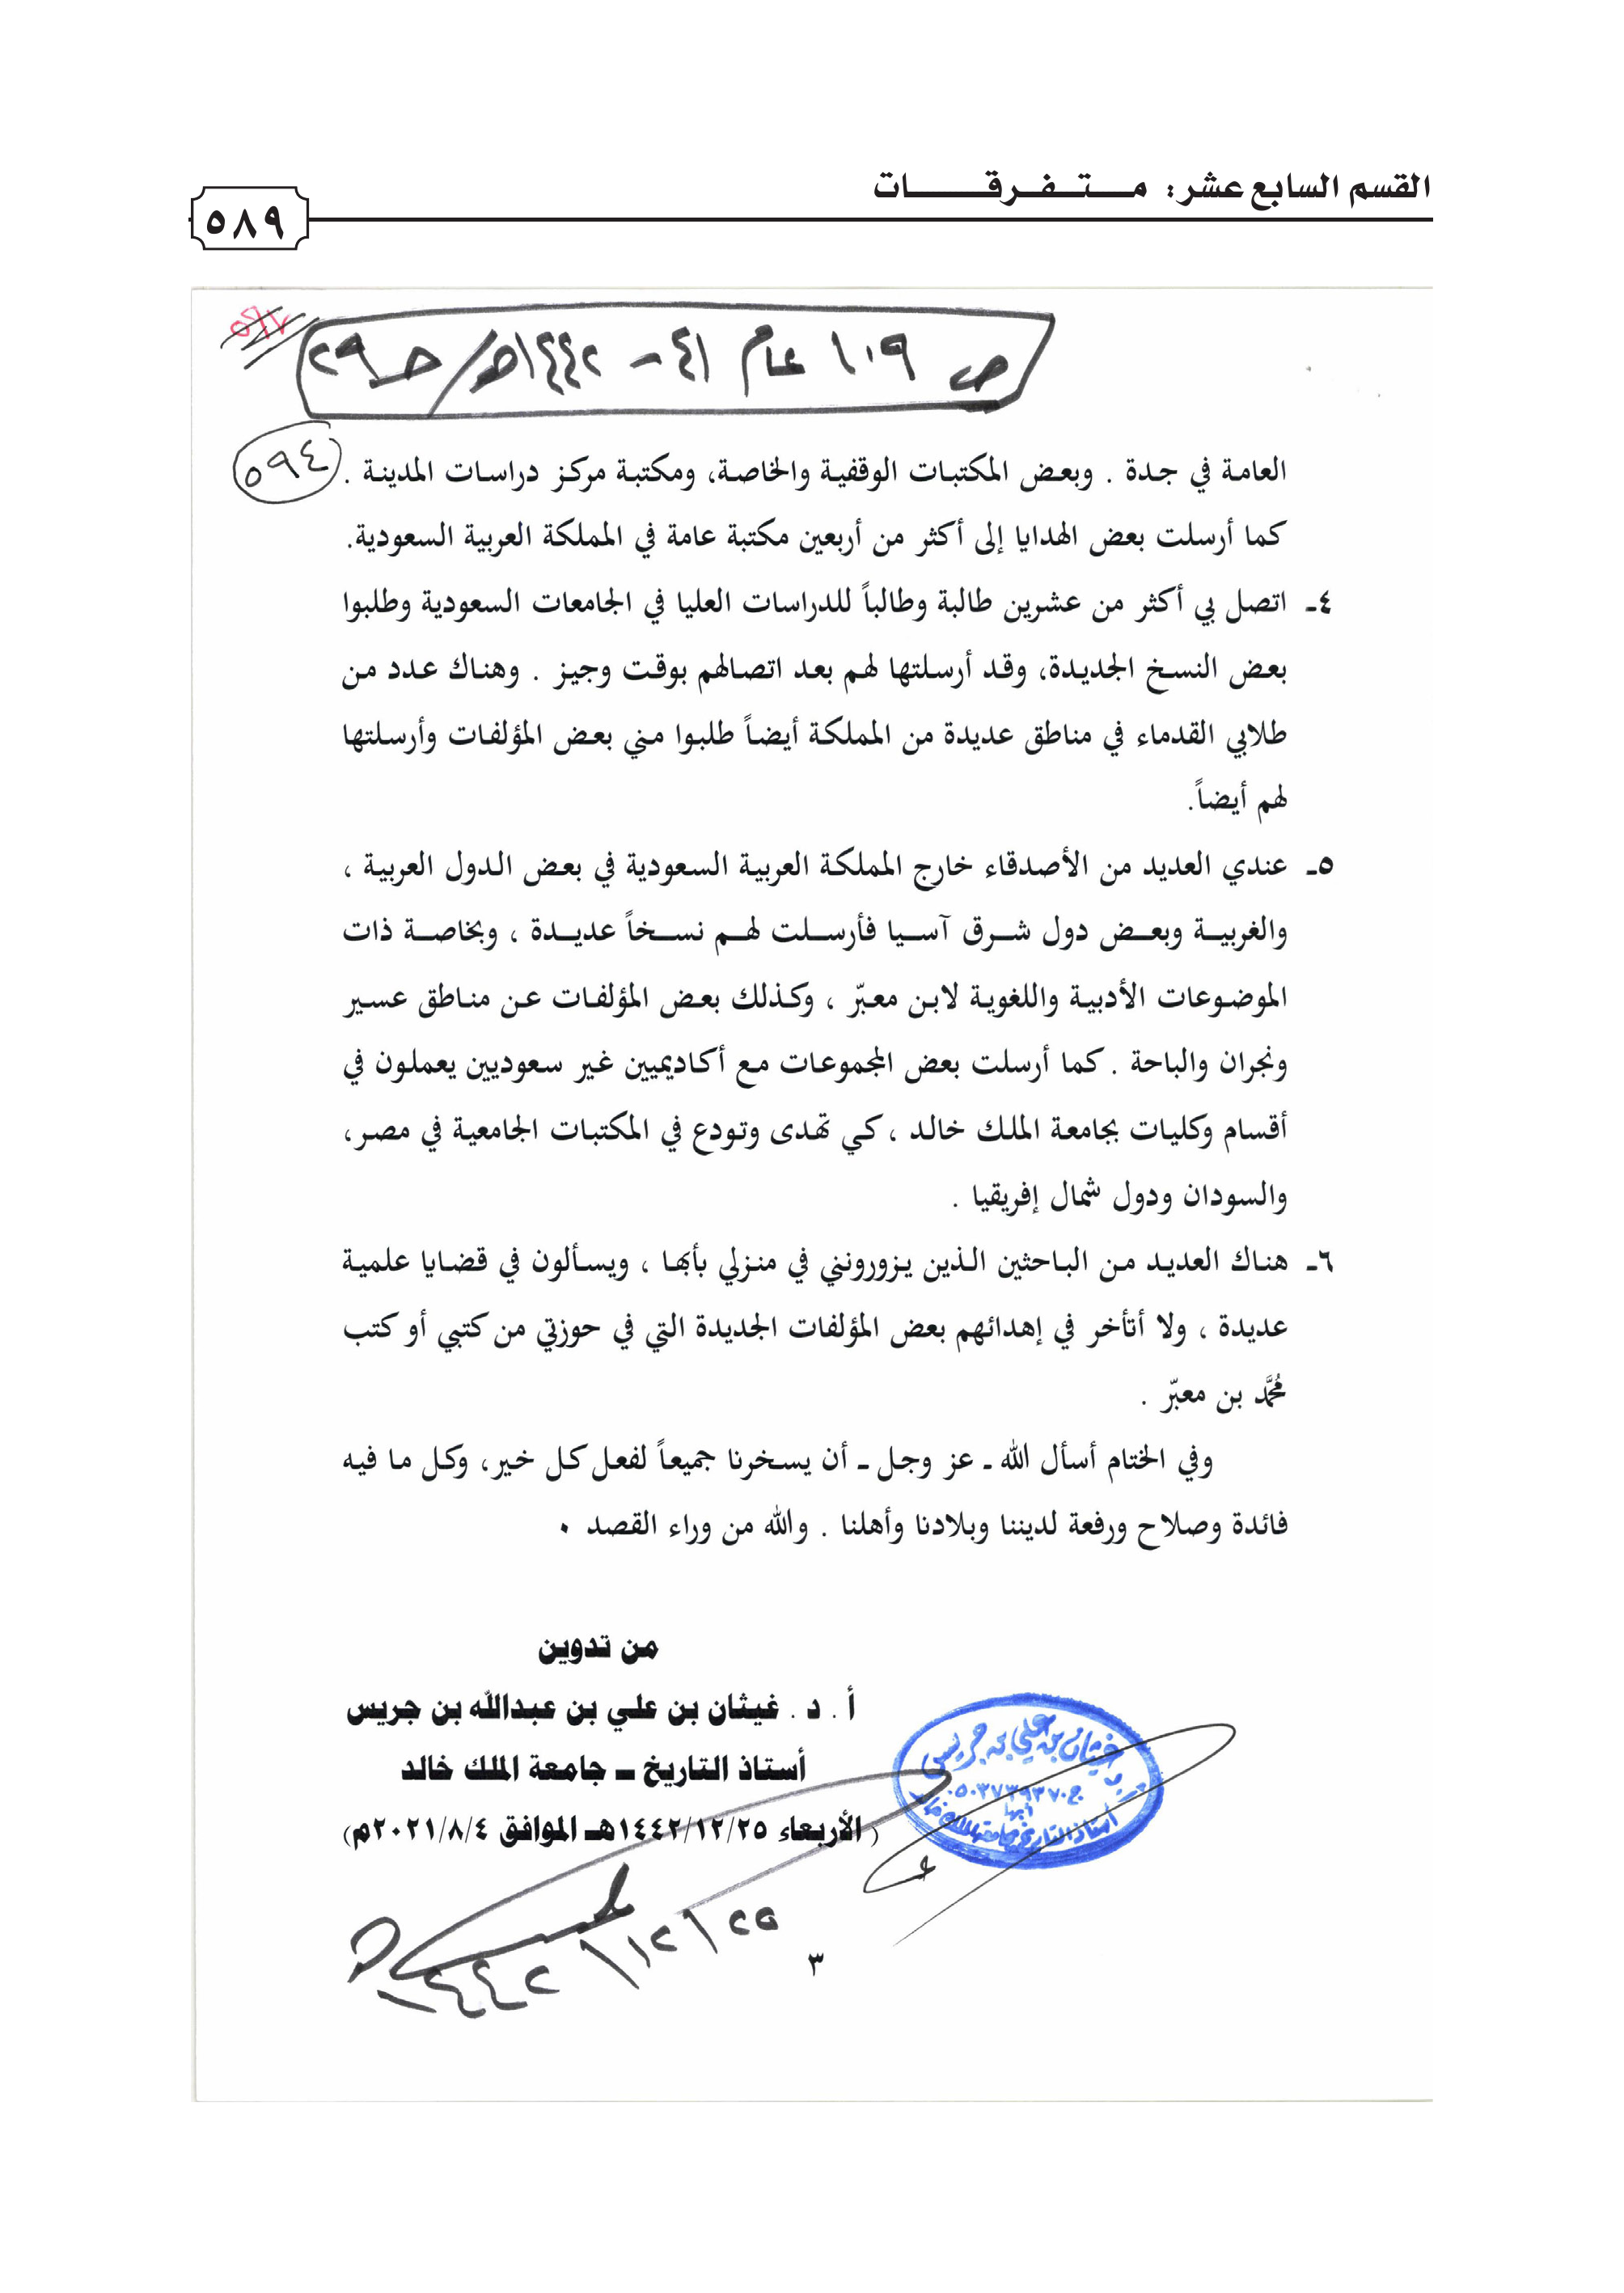 القسم السابع عشر: متفرقات
٥٨٩
ص ١٠٩ عام ٤١ - ١٤٤٢هـ/ حـ ٢٩
٥٩٤
العامة في جدة . وبعض المكتبات الوقفية والخاصة، ومكتبة مركز دراسات المدينة .
كما أرسلت بعض الهدايا إلى أكثر من أربعين مكتبة عامة في المملكة العربية السعودية.
٤ـ اتصل بي أكثر من عشرين طالبة وطالباً للدراسات العليا في الجامعات السعودية وطلبوا
بعض النسخ الجديدة، وقد أرسلتها لهم بعد اتصالهم بوقت وجيز . وهناك عدد من
طلابي القدماء في مناطق عديدة من المملكة أيضاً طلبوا مني بعض المؤلفات وأرسلتها
لهم أيضاً.
٥ـ عندي العديد من الأصدقاء خارج المملكة العربية السعودية في بعض الدول العربية ،
والغربية وبعض دول شرق آسيا فأرسلت لهم نسخاً عديدة ، وبخاصة ذات
الموضوعات الأدبية واللغوية لابن معبّر ، وكذلك بعض المؤلفات عن مناطق عسير
ونجران والباحة . كما أرسلت بعض المجموعات مع أكاديميين غير سعوديين يعملون في
أقسام وكليات بجامعة الملك خالد ، كي تهدى وتودع في المكتبات الجامعية في مصر،
والسودان ودول شمال إفريقيا .
٦ـ هناك العديد من الباحثين الذين يزورونني في منزلي بأبها ، ويسألون في قضايا علمية
عديدة ، ولا أتأخر في إهدائهم بعض المؤلفات الجديدة التي في حوزتي من كتبي أو كتب
مُحمَّد بن معبّر .
وفي الختام أسأل الله ـ عز وجل ـ أن يسخرنا جميعاً لفعل كل خير، وكل ما فيه
فائدة وصلاح ورفعة لديننا وبلادنا وأهلنا . والله من وراء القصد ٠
من تدوين
أ . د . غيثان بن علي بن عبدالله بن جريس
أستاذ التاريخ ـ جامعة الملك خالد
(الأربعاء ١٤٤٢/١٢/٢٥هـ الموافق ٢٠٢١/٨/٤م)
أ.د غيثان بن علي بن جريس
ج ٠٥٠٣٧٣٩٣٧٠
أبها
أستاذ التاريخ بجامعة الملك خالد
٢٥/١٢/١٤٤٢
٣